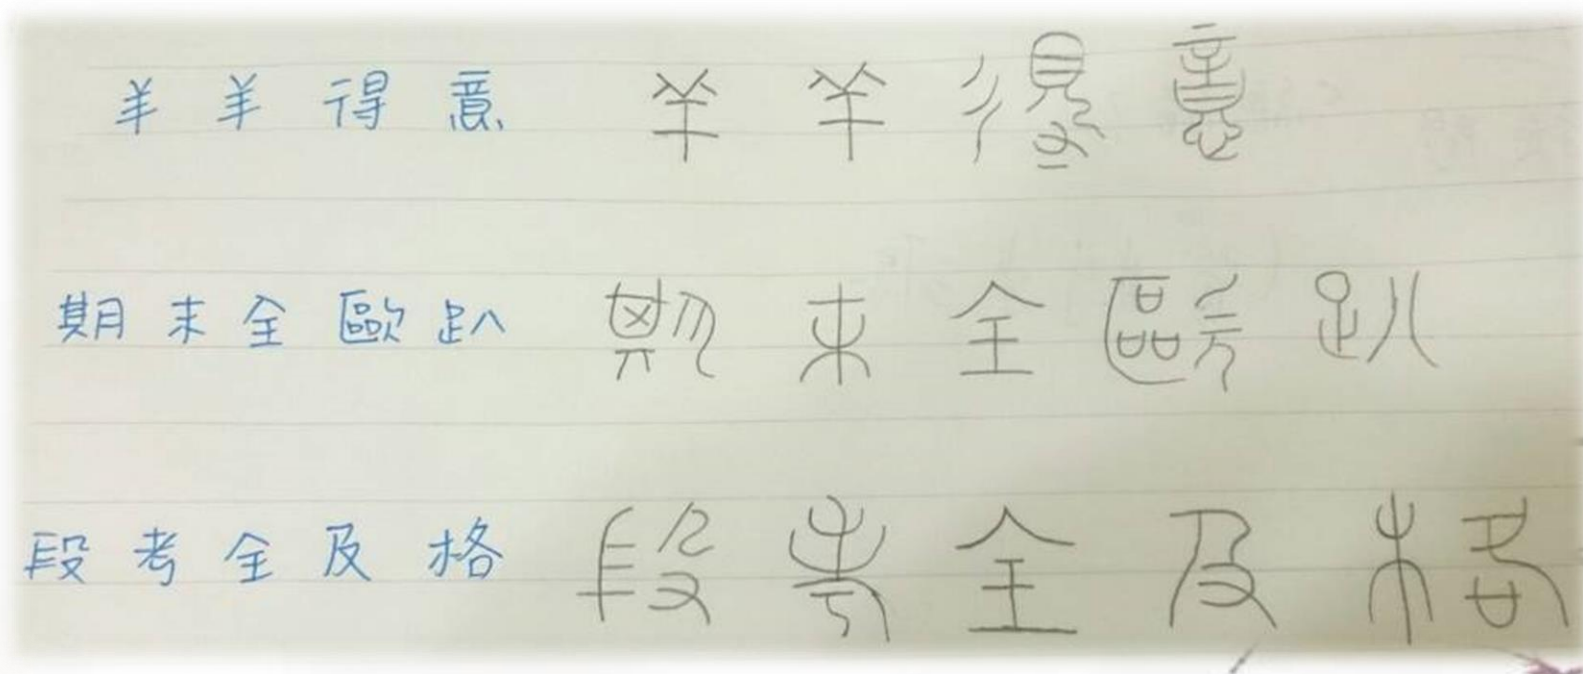 羊羊得意 羊羊得意
期末全歐趴 期末全歐趴
段考全及格 段考全及格